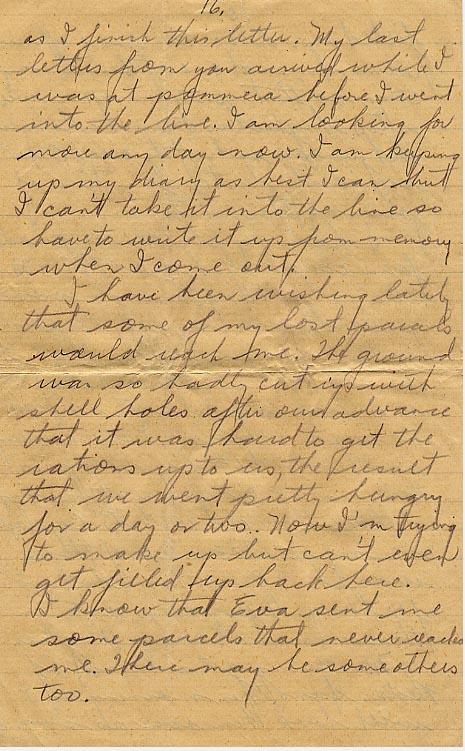 16.
as I finish this letter. My last
letters from you arrived while I
was at pommera before I went
into the line. I am looking for
more any day now. I am keeping
up my diary as best I can but
I can't take it into the line so
have to write it up from memory
when I come out.
I have been wishing lately
that some of my lost parcels
would reach me. The ground
was so badly cut up with
shell holes after our advance
that it was hard to get the
rations up to us, the result
that we went pretty hungry
for a day or two. Now I'm trying
to make up but can't even
get filled up back here.
I know that Eva sent me
some parcels that never reached
me. There may be some others
too.